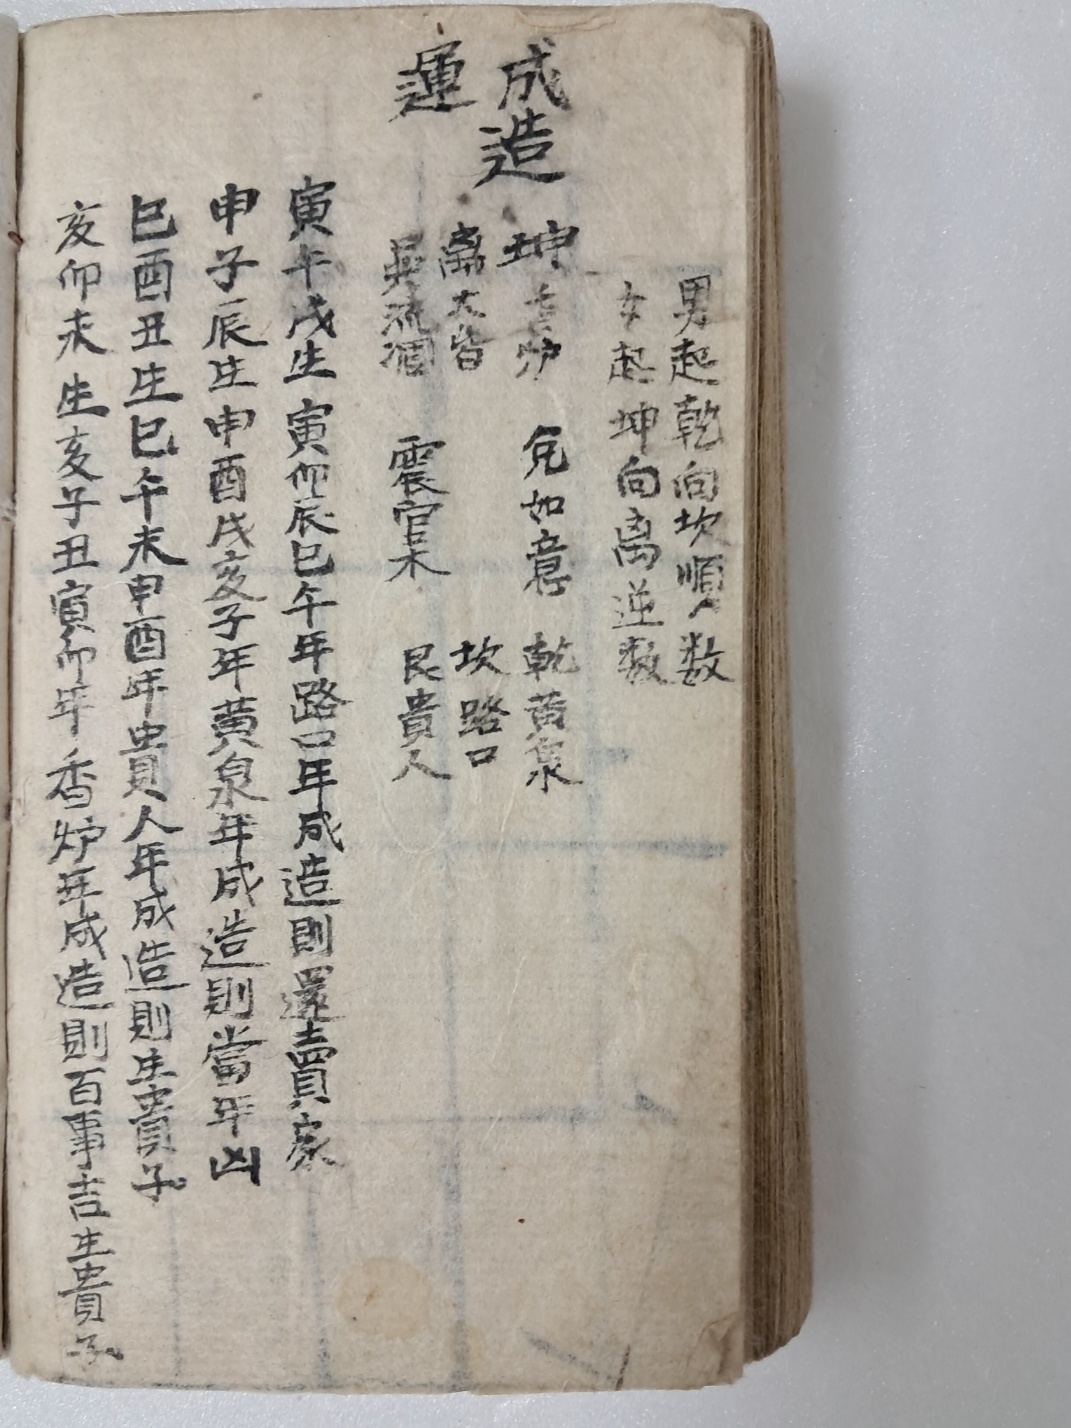 男起乾向坎順数
女起坤向离逆数
成造
運
坤香炉
兌如意
乾黄泉
离大皆
坎路口
巽流涸
震官禄
艮貴人
寅午戌生寅卯辰巳午年路口年成造則還賣家
申子辰生申酉戌亥子年黄泉年成造則當年凶
巳酉丑生巳午未申酉年貴人年成造則生貴子
亥卯未生亥子丑寅卯年香炉年成造則百事吉生貴子